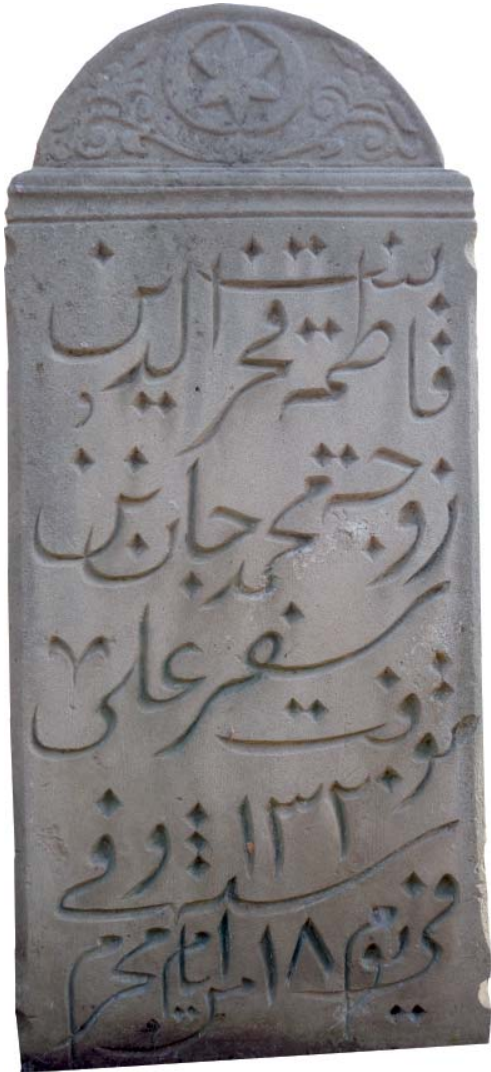 فاطمة بنت فخر الدين
زوجة محمد جان بن
سفر علي توفت
في سنة ١٣٢٠ وفي
يوم ١٨ من ايام محرم